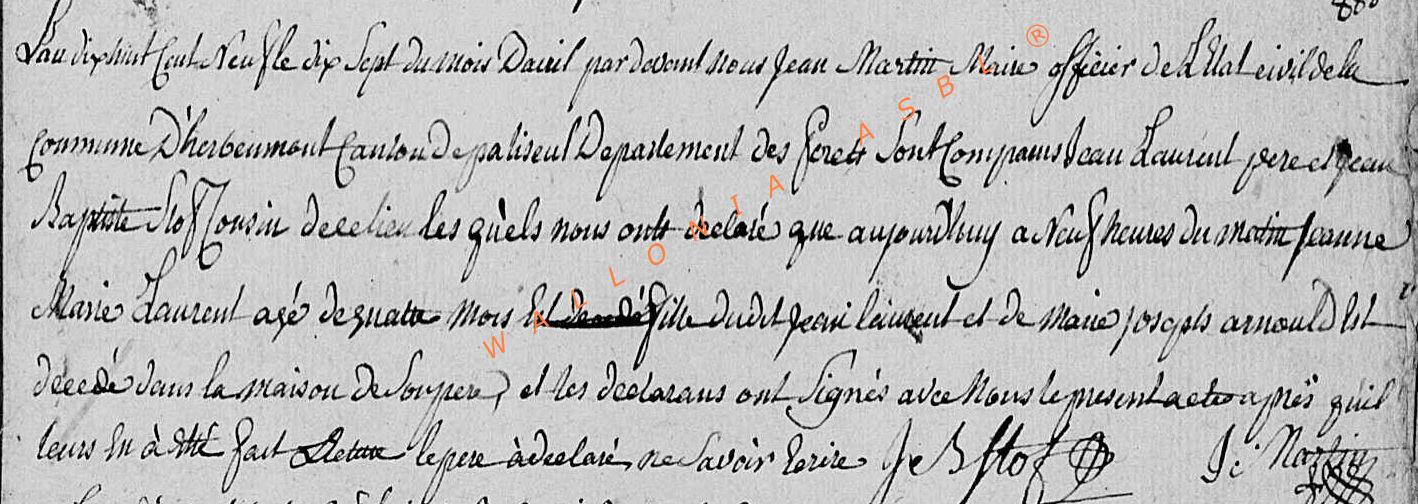 L'an dix huit Cent Neuf le dix Sept du mois D'avril par devant nous Jean Martin Maire officier de L'Etat civil de la
Commune D'herbeumont Canton de paliseul Departement des forets Sont Comparus Jean Laurent pere et jean
Baptiste Stof Cousin de ce lieu les quèls nous onts declaré que aujourd'huy a Neuf heures du matin Jeanne
Marie Laurent agé de quatre mois Est decedé fille dudit Jean laurent et de Marie josephs arnould Est
decedé dans la maison de Son pere, et les declarans ont Signés avec Nous le present acte aprés qu'il
leurs En à été fait Lecture le pere à declaré ne Savoir Ecrire J B Stof J. Martin
WALLONIA ASBL ®